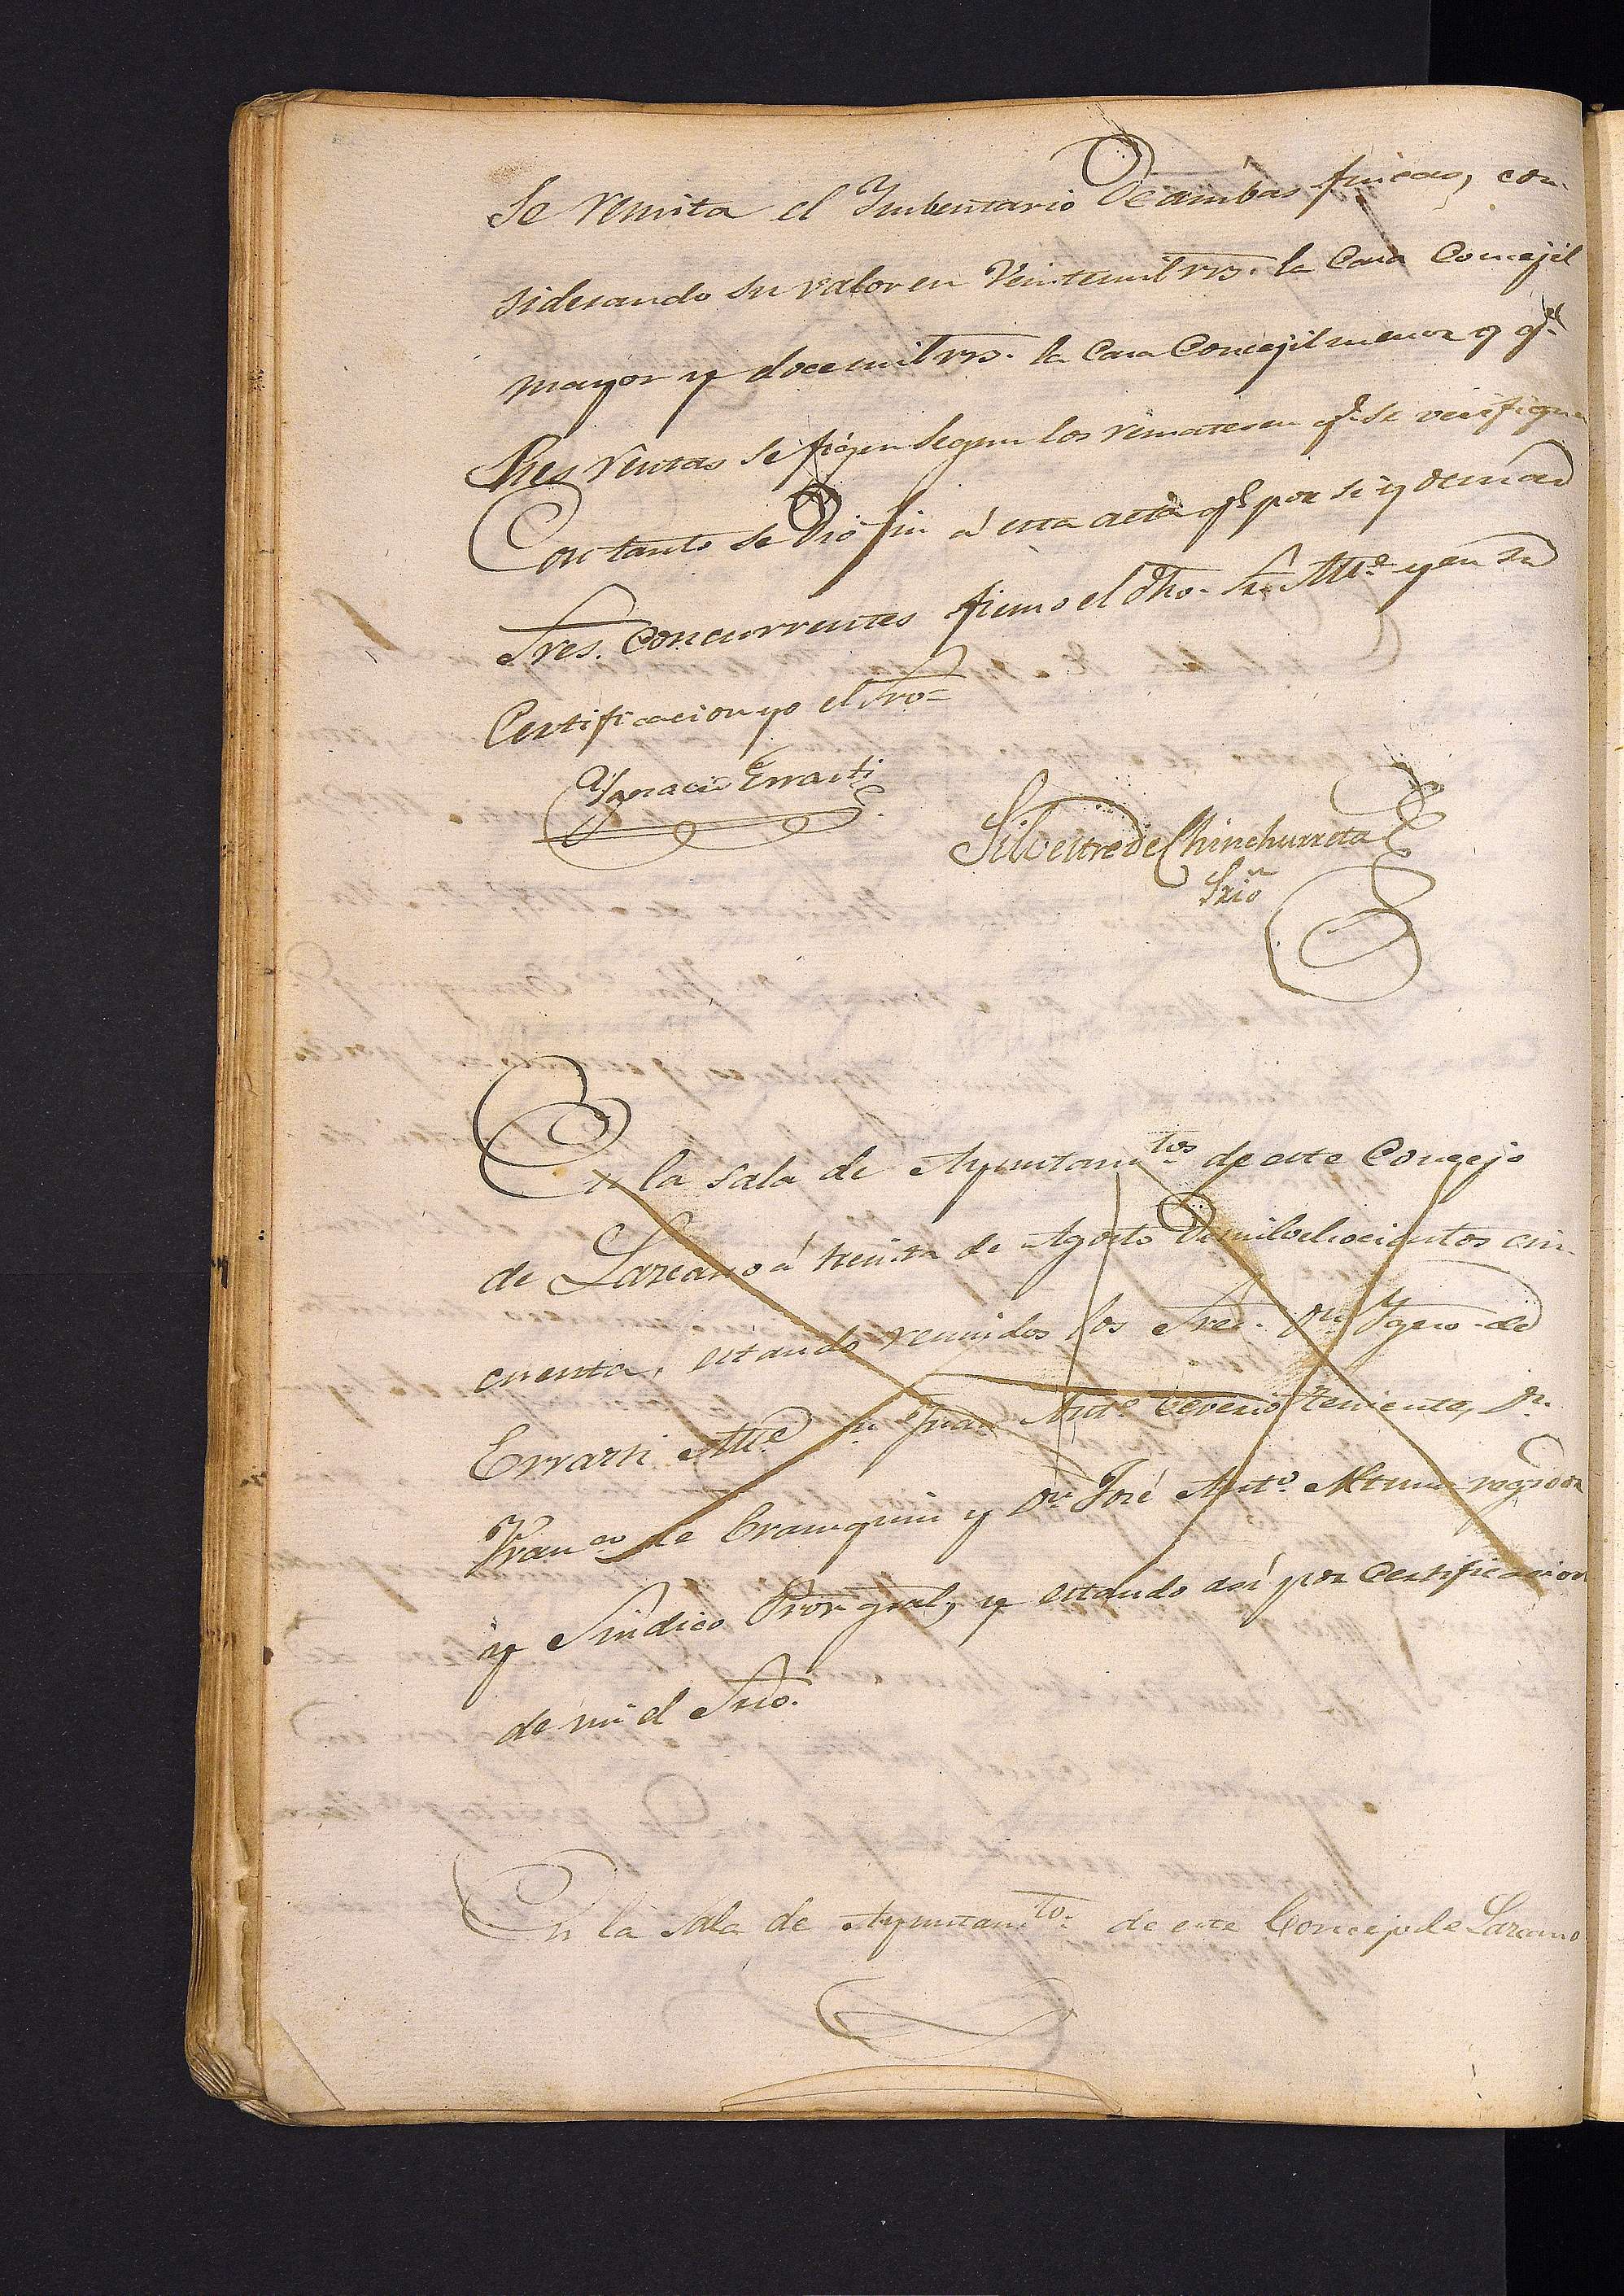 Se remita el Imbentario de ambas fincas, con-
siderando su valor en Veintemil rrs. la Casa Concejil
mayor y docemil rrs. la Casa Concejil menor y qe
sus rentas se fijen segun los remates en qe se verifiquen
Con tanto se dió fin á esta acta qe por si y demas
Sres. Concurrentes firmo el dho. Sr. Alle. y en su
Certificacion yo el Srio=
Ygnacio Errasti
Silvestre de Chinchurreta
Srio
En la sala de Ayuntamtos de este Concejo
de Lazcano á treinta de Agosto de mil ochocientos cin-
cuenta, estando reunidos los Sres. Dn Ygno. de
Errazti Alle Dn Juan Anto. Ceverio teniente, Dn
Franco de Aramguin y Dn José Anto. Altuna regidor
y Sindico Pror gral, y estando así por Certificacion
de mi el Srio.
En la sala de Ayuntamto. de este Concejo de Lazcano